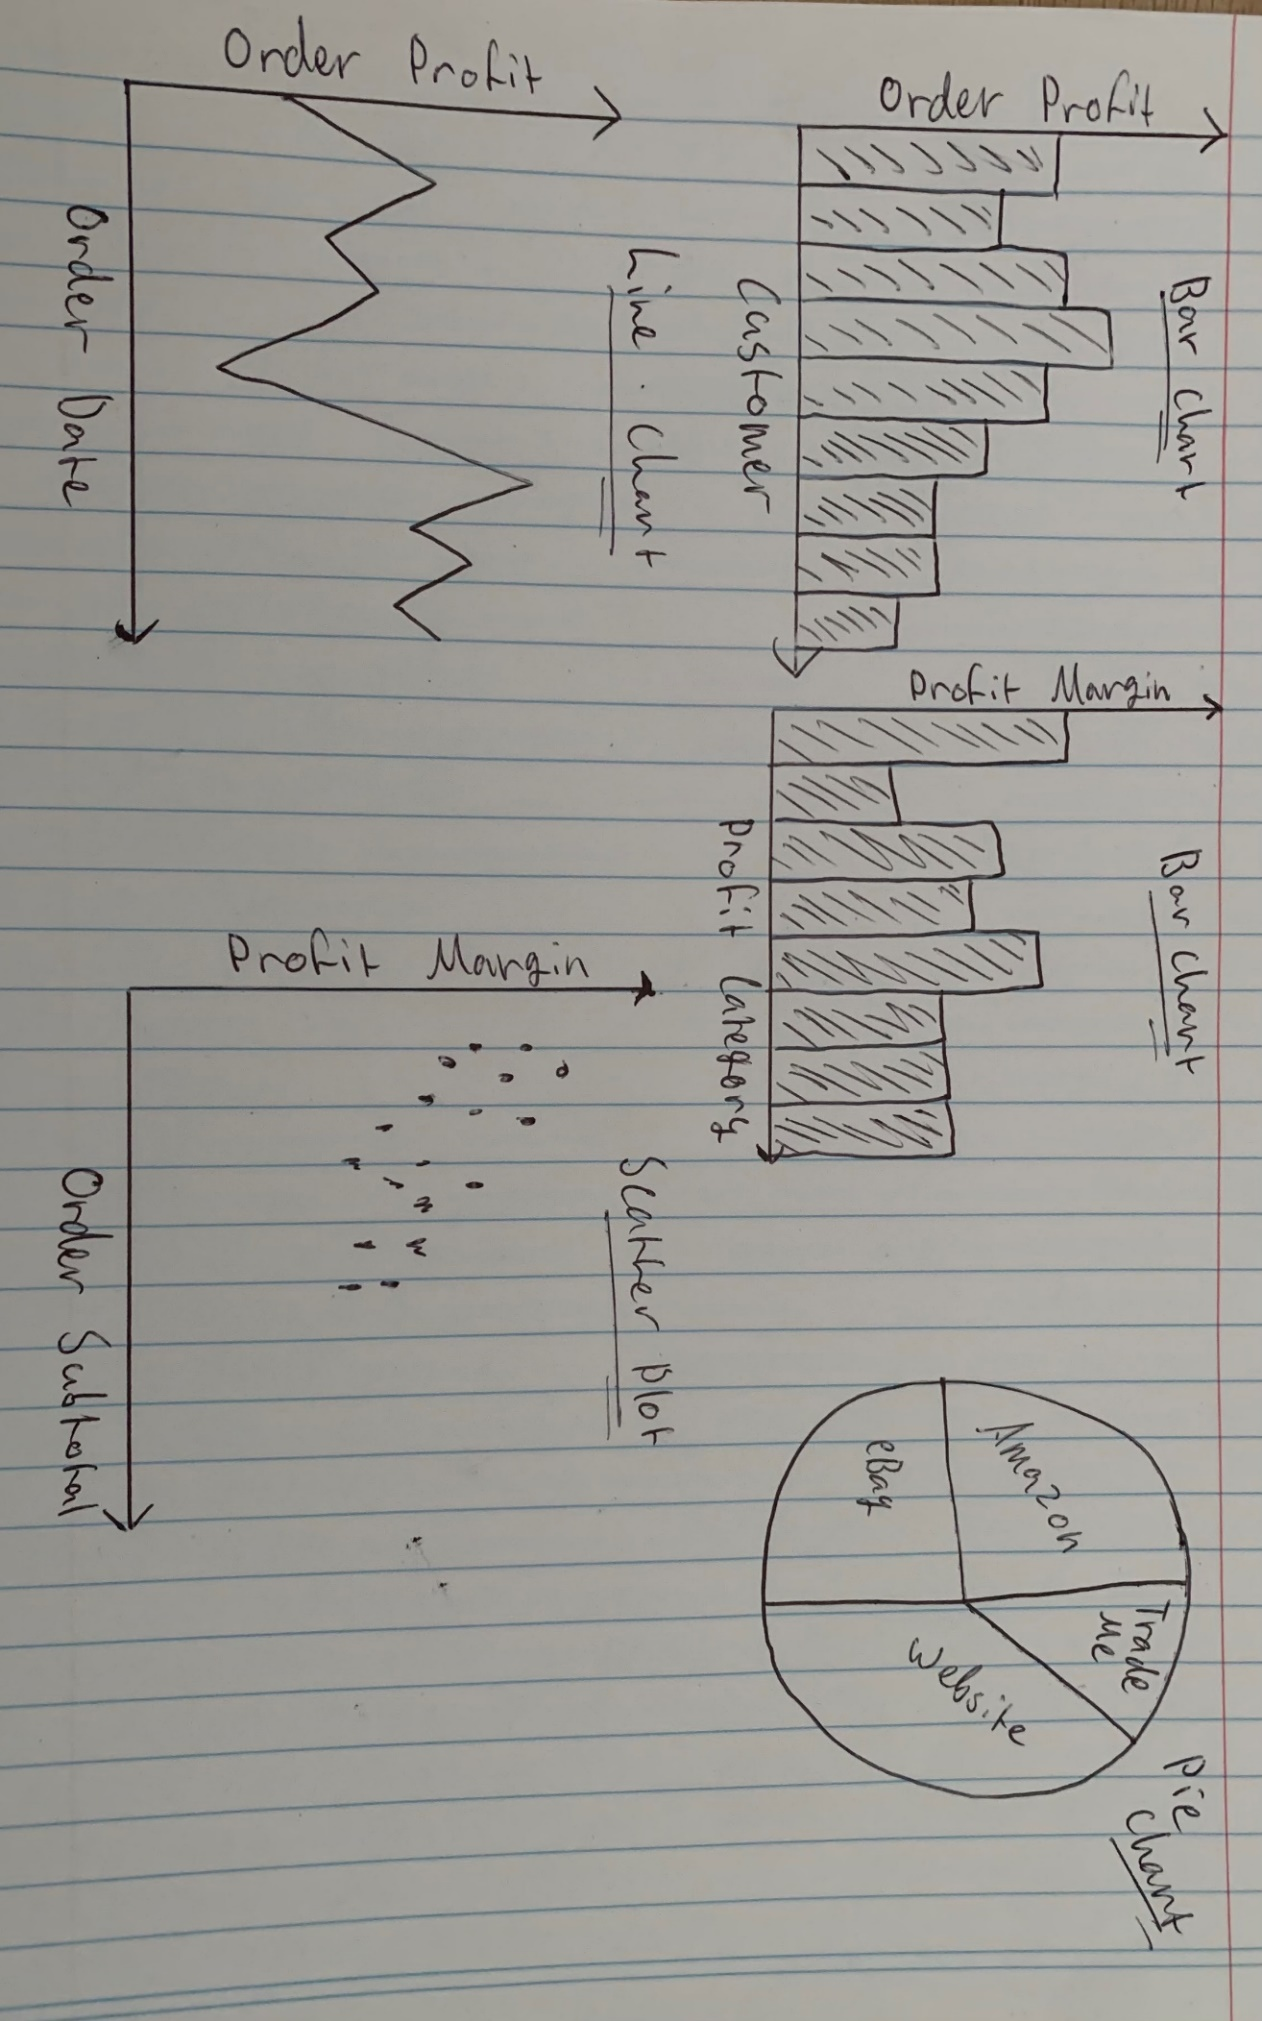 Bar Chart
Order Profit
Customer
Bar Chart
Profit Margin
Profit Category
Pie
Chart
Amazon
Trade
Me
eBay
Website
Line Chart
Order Profit
Order Date
Scatter Plot
Profit Margin
Order Subtotal